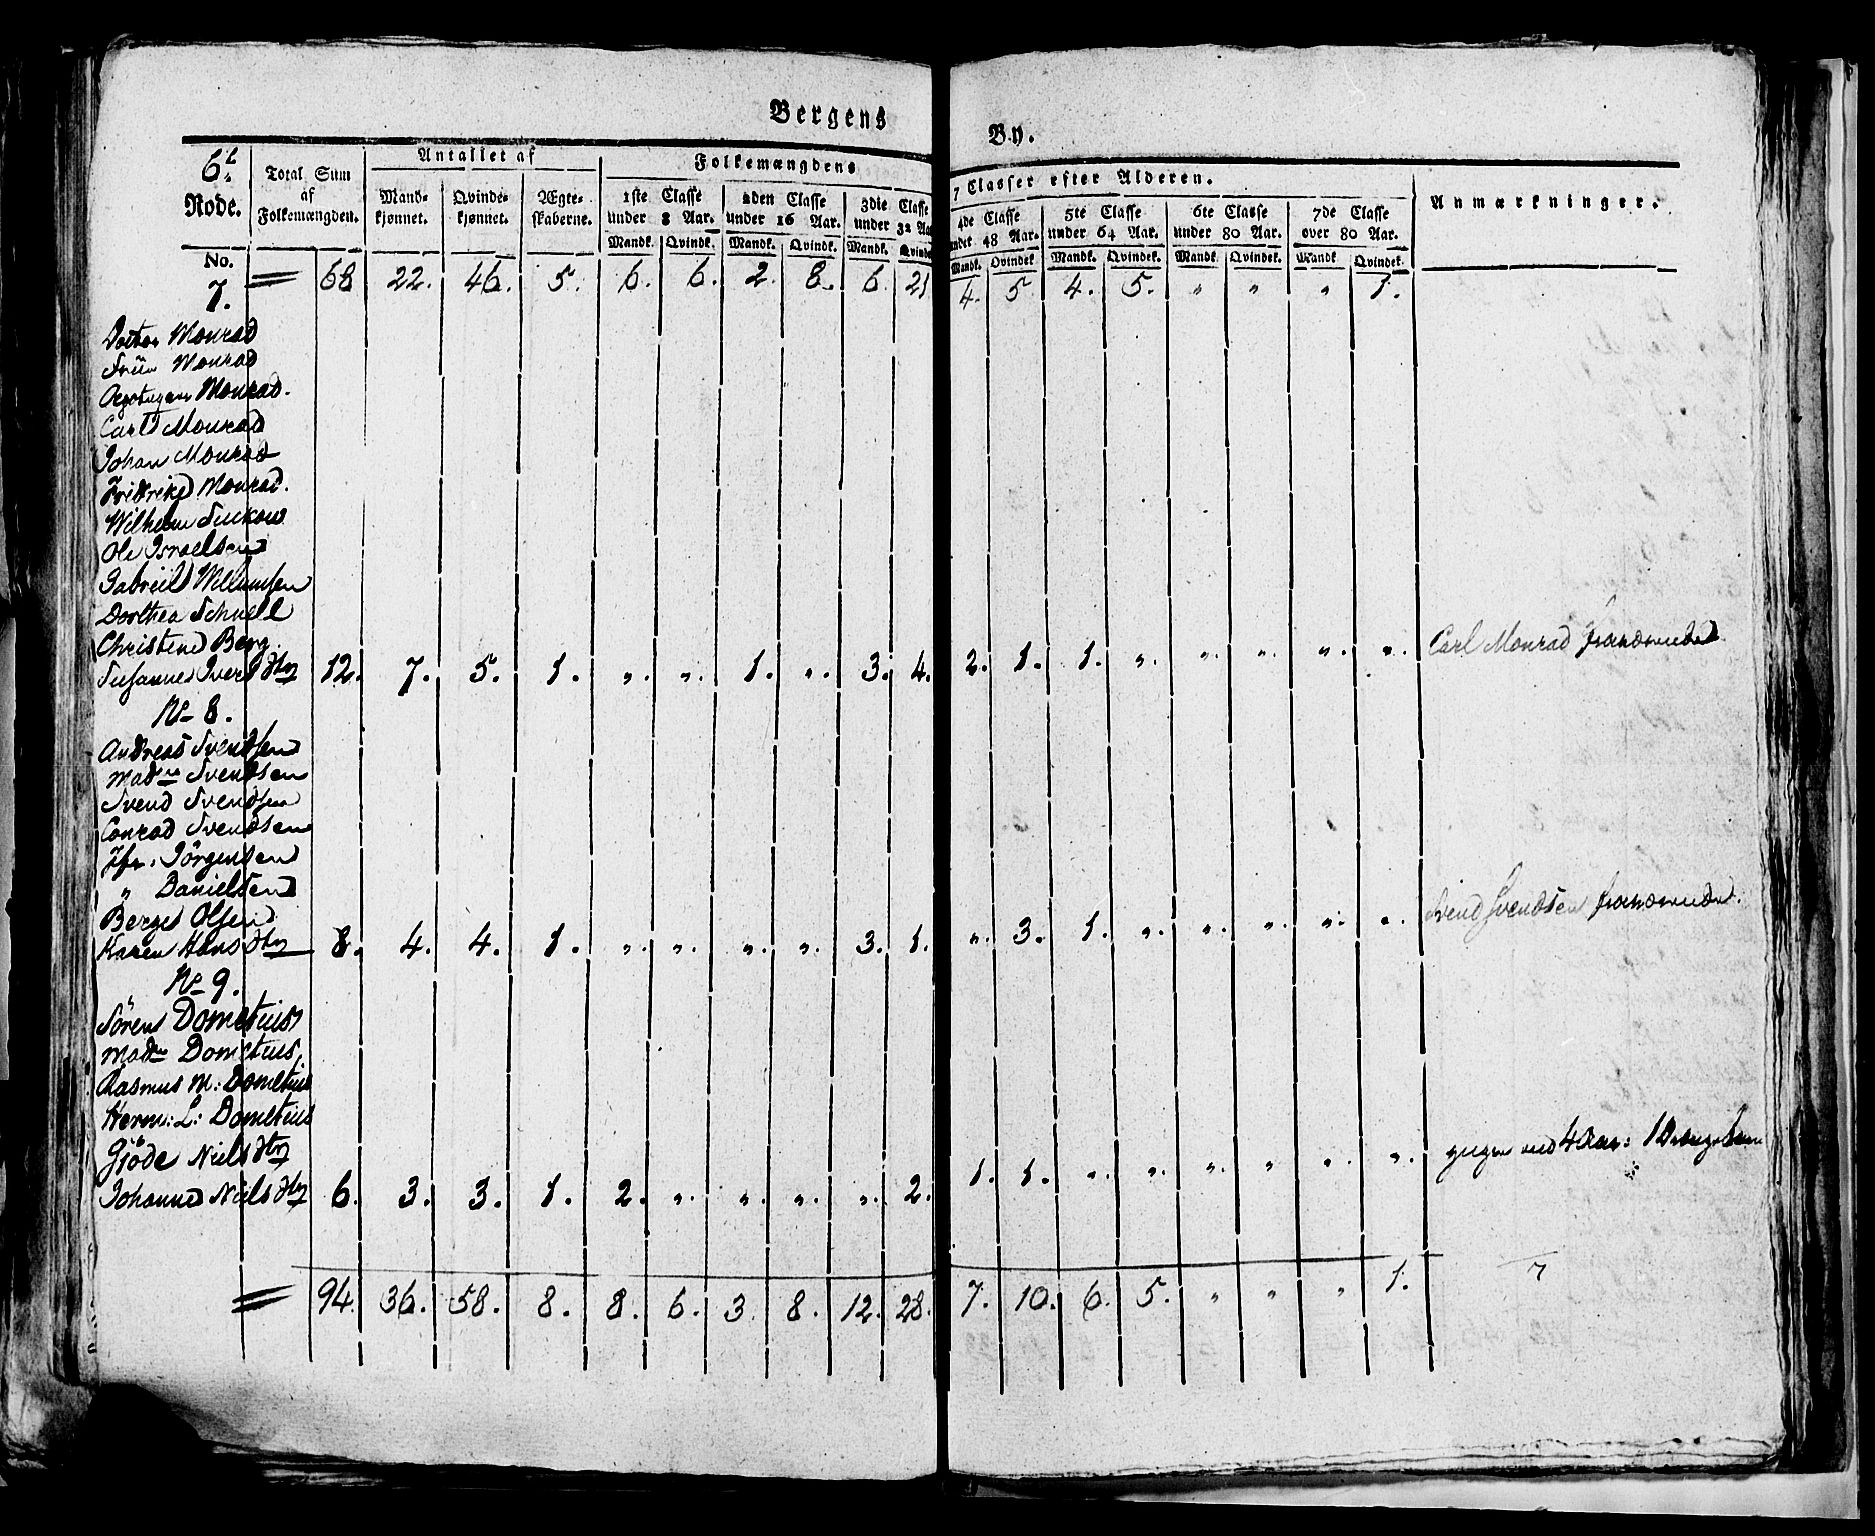 Bergens By.
6t. Rode.
Total Sum af Folkemængden.
Antallet af
Mandkjønnet. Qvindekjønnet. Ægteskaberne.
Folkemængdens 7 Classer efter Alderen.
1ste Classe under 8 Aar. 2den Classe under 16 Aar. 3die Classe under 32 Aar. 4de Classe under 48 Aar. 5te Classe under 64 Aar. 6te Classe under 80 Aar. 7de Classe over 80 Aar.
Mandk. Qvindek. Mandk. Qvindek. Mandk. Qvindek. Mandk. Qvindek. Mandk. Qvindek. Mandk. Qvindek. Mandk. Qvindek.
Anmærkninger.
No. 7. 68 22. 46. 5. 6. 6. 2. 8. 6. 21 4. 5 4. 5. " " " 1.
Doctor Monrad
Früe Monrad
Monrad.
Carl Monrad
Johan Monrad
Fridrike Monrad.
Wilhelm Suckow
Ole Israelsen
Gabriel Willumsen
Dorthea Schnell
Christine Berg.
Susanne Ivers Dtr 12. 7. 5. 1. " " 1. " 3. 4. 2. 1. 1. " " " " " Carl Monrad
No 8.
Andreas Svendsen
Madme Svendsen
Svend Svendsen
Conrad Svendsen
Jfr. Jörgensen
" Danielsen
Berge Olsen
Karen Hans Dtr 8. 4. 4. 1. " " " " 3. 1. " 3. 1. " " " " " Svend Svendsen
No 9.
Sören Dometius
Madme Dometius,
Rasmus M: Dometius
Herm: L: Dometius
Giöde Niels Dtr
Johanne Niels Dtr 6. 3. 3. 1. 2. " " " " 2. 1. 1. " " " " " " 4 Aar: 1
94. 36. 58. 8. 8. 6. 3. 8. 12. 28. 7. 10. 6. 5. " " " 1.